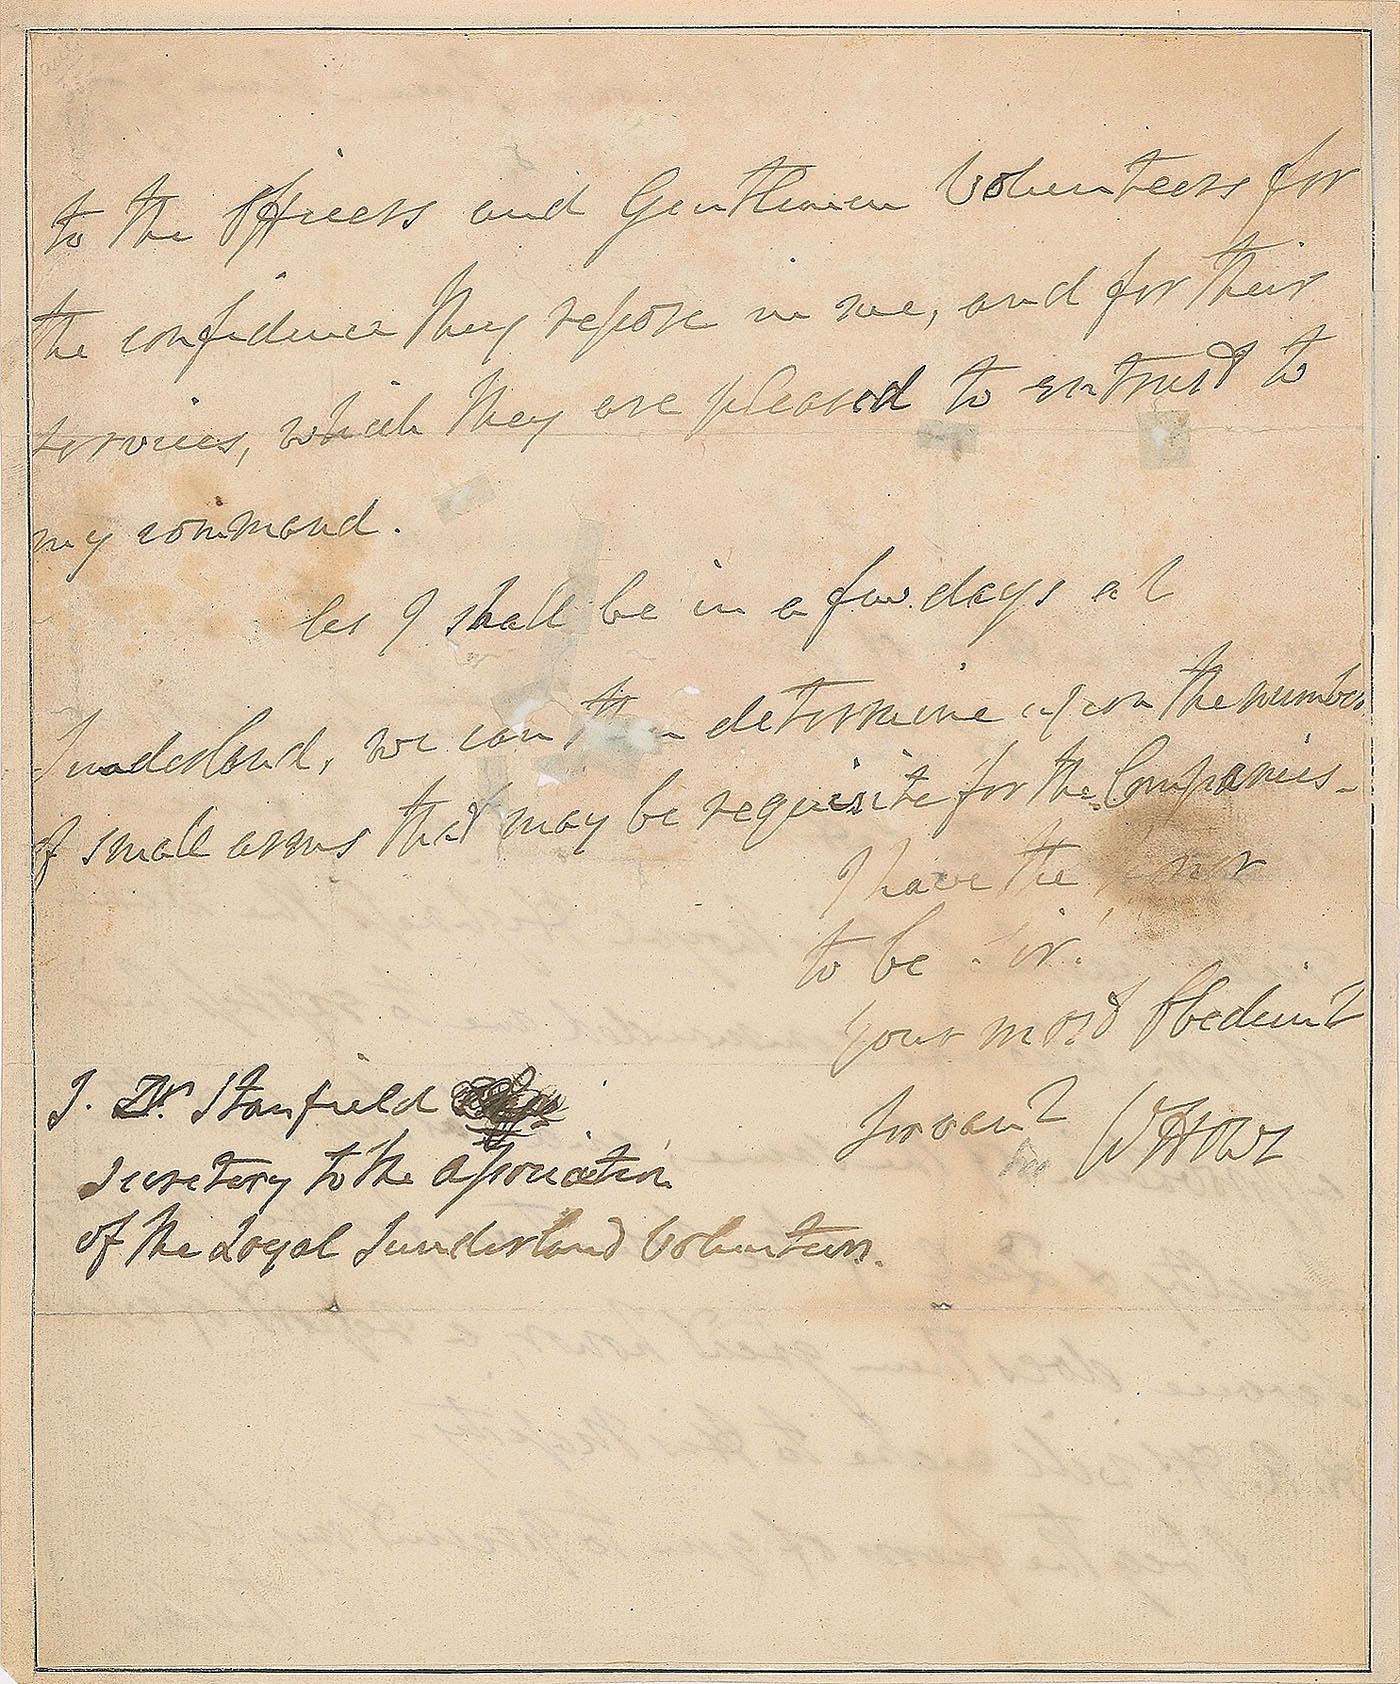 to the Officers and Gentlemen Volunteers for
the confidence they repose in me, and for their
services, which they are pleased to entrust to
my command.
as I shall be in a few days at
Sunderland, we can then determine upon the number
of small arms that may be requisite for the Companies -
I have the honor
to be Sir.
your most Obedient
Servant Wm Howe
J. Stanfield
Secretary to the Association
of the Loyal Sunderland Volunteers.